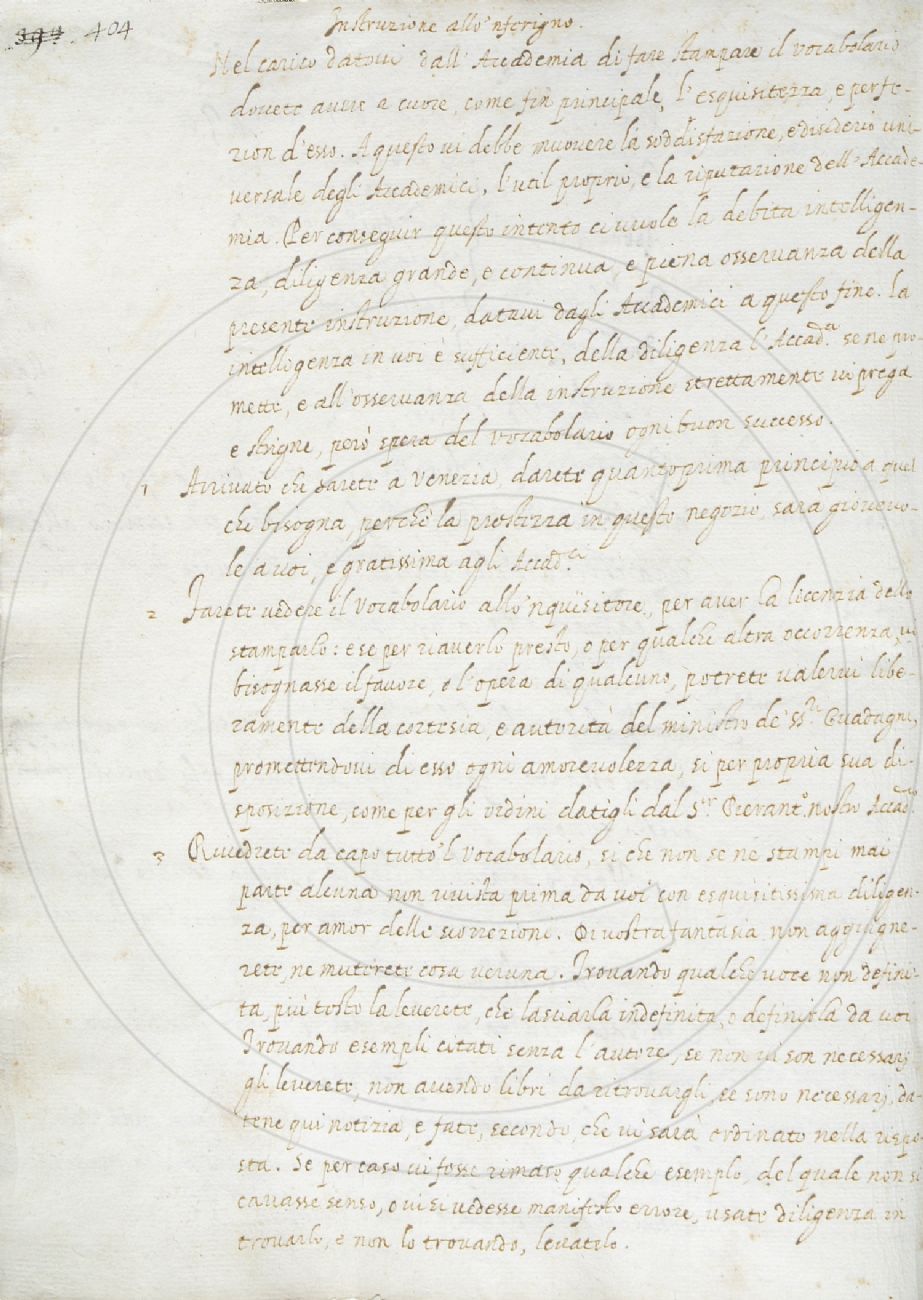 404
Instruzione allo 'nferigno.
Nel carico datovi dall'Accademia di fare stampare il vocabolario
dovete avere a cuore, come fin principale, l'esquisitezza, e perfe-
zion d'esso. A questo vi debbe muovere la soddisfazione, e disiderio uni-
versale degli Accademici, l'util proprio, e la riputazione dell'Accade-
mia. Per conseguir questo intento ci vuole la debita intelligen-
za, diligenza grande, e continua, e piena osservanza della
presente instruzione, datavi dagli Accademici a questo fine. La
intelligenza in voi è sufficiente, della diligenza l'Accad.a se ne pro-
mette, e all'osservanza della instruzione strettamente vi prega
e strigne, però spera del vocabolario ogni buon successo.
1 Arrivato che sarete a Venezia, darete quanto prima principio a quel
che bisogna, perchè la prestezza in questo negozio, sarà giovevo-
le a voi, e gratissima agli Accad.ci
2 Farete vedere il vocabolario allo 'nquisitore, per aver la licenzia dello
stamparlo: e se per riaverlo presto, o per qualche altra occorrenza, vi
bisognasse il favore, o l'opera di qualcuno, potrete valervi libe-
ramente della cortesia, e autorità del ministro de' SS.ri Guadagni,
promettendovi di esso ogni amorevolezza, sì per propria sua di-
sposizione, come per gli ordini datigli dal S.r Pierant.o nostro Accad.co
3 Rivedrete da capo tutto 'l vocabolario, sì che non se ne stampi mai
parte alcuna non rivista prima da voi con esquisitissima diligen-
za, per amor delle scorrezioni. Di vostra fantasia non aggiugne-
rete, ne muterete cosa veruna. Trovando qualche voce non defini-
ta, più tosto la leverete, che lasciarla indefinita, o definirla da voi
Trovando esempli citati senza l'autore, se non vi son necessarj
gli leverete, non avendo libri da ritrovargli, se sono necessarj, da-
tene qui notizia, e fate, secondo, che vi sarà ordinato nella rispo-
sta. Se per caso vi fosse rimaso qualche esemplo, del quale non si
cavasse senso, o vi si vedesse manifesto errore, usate diligenza in
trovarlo, e non lo trovando, levatelo.